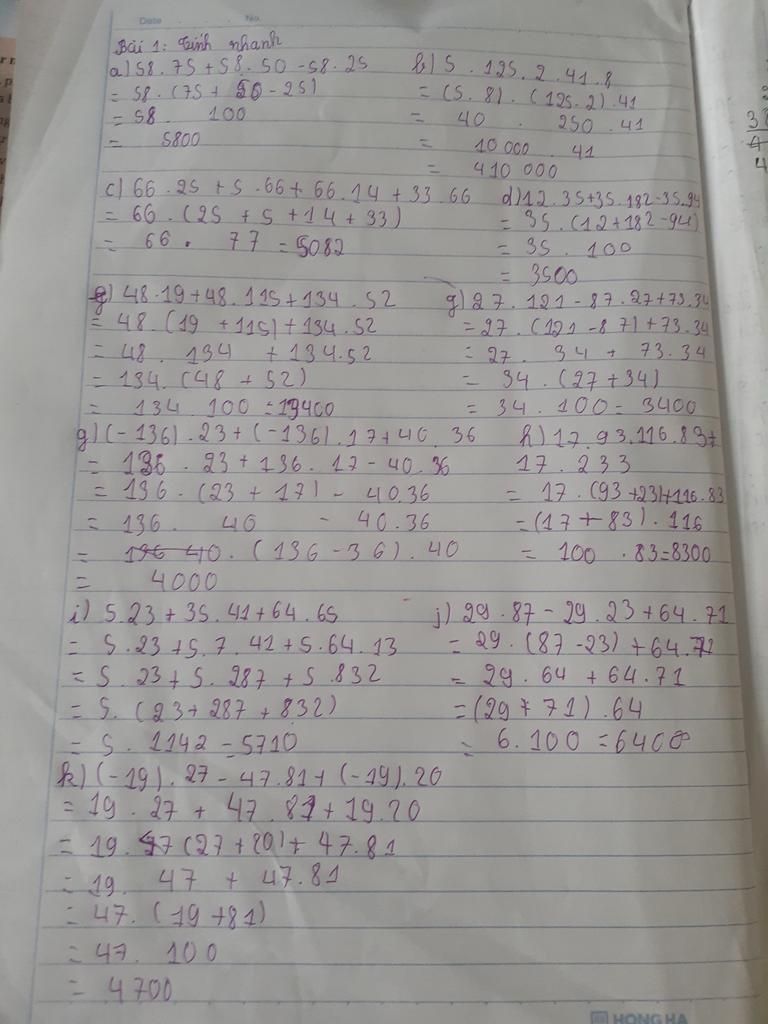 Date No.
Bài 1: Tính nhanh
a) 58.75 + 58.50 - 58.25
= 58.(75 + 50 - 25)
= 58. 100
= 5800
b) 5.125.2.41.8
= (5.8).(125.2).41
= 40 . 250 .41
= 10 000 . 41
= 410 000
c) 66.25 + 5.66 + 66.14 + 33.66
= 66.(25 + 5 + 14 + 33)
= 66. 77 = 5082
d) 12.35 + 35.182 - 35.94
= 35.(12 + 182 - 94)
= 35. 100
= 3500
e) 48.19 + 48.115 + 134.52
= 48.(19 + 115) + 134.52
= 48. 134 + 134.52
= 134.(48 + 52)
= 134. 100 = 13400
g) 27.121 - 87.27 + 73.34
= 27.(121 - 87) + 73.34
= 27. 34 + 73.34
= 34.(27 + 34)
= 34.100 = 3400
g) (-136).23 + (-136).17 + 40.36
= 136.23 + 136.17 - 40.36
= 136.(23 + 17) - 40.36
= 136. 40 - 40.36
= .(136 - 36).40
= 4000
h) 17.93.116.83+
17.233
= 17.(93 + 23) + 116.83
= (17 + 83).116
= 100 .83 = 8300
i) 5.23 + 35.41 + 64.65
= 5.23 + 5.7.41 + 5.64.13
= 5.23 + 5.287 + 5.832
= 5.(23 + 287 + 832)
= 5. 1142 = 5710
j) 29.87 - 29.23 + 64.71
= 29.(87 - 23) + 64.71
= 29.64 + 64.71
= (29 + 71).64
= 6.100 = 6400
k) (-19).27 - 47.81 + (-19).20
= 19.27 + 47.81 + 19.20
= 19.(27 + 20) + 47.81
= 19. 47 + 47.81
= 47.(19 + 81)
= 47. 100
= 4700
HONG HA